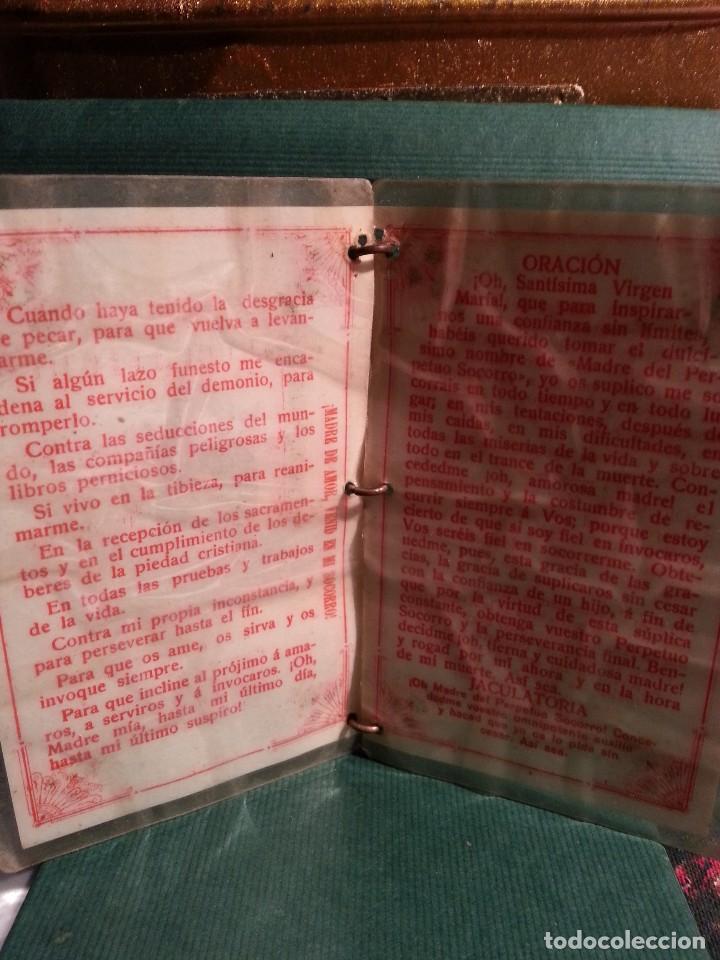 Cuando haya tenido la desgracia
e pecar, para que vuelva a levan-
arme.
Si algún lazo funesto me enca-
dena al servicio del demonio, para
romperlo.
Contra las seducciones del mun-
do, las compañías peligrosas y los
libros perniciosos.
Si vivo en la tibieza, para reani-
marme.
En la recepción de los sacramen-
tos y en el cumplimiento de los de-
beres de la piedad cristiana.
En todas las pruebas y trabajos
de la vida.
Contra mi propia inconstancia, y
para perseverar hasta el fin.
Para que os ame, os sirva y os
invoque siempre.
Para que incline al prójimo á ama-
ros, a serviros y á invocaros. ¡Oh,
Madre mía, hasta mi último día,
hasta mi último suspiro!
¡MADRE DE AMOR, VENID EN MI SOCORRO!
ORACIÓN
¡Oh, Santísima Virgen
María!, que para inspirar-
nos una confianza sin límite
habéis querido tomar el dulcí-
simo nombre de «Madre del Per-
petuo Socorro», yo os suplico me so-
corráis en todo tiempo y en todo lu-
gar; en mis tentaciones, después de
mis caídas, en mis dificultades, en
todas las miserias de la vida y sobre
todo en el trance de la muerte. Con-
cededme ¡oh, amorosa madre! el
pensamiento y la costumbre de re-
currir siempre á Vos; porque estoy
cierto de que si soy fiel en invocaros,
Vos seréis fiel en socorrerme. Obte-
nedme, pues, esta gracia de las gra-
cias, la gracia de suplicaros sin cesar
con la confianza de un hijo, á fin de
que por la virtud de esta súplica
constante, obtenga vuestro Perpetuo
Socorro y la perseverancia final. Ben-
decidme ¡oh, tierna y cuidadosa madre!
y rogad por mí ahora y en la hora
de mi muerte. Así sea.
JACULATORIA
¡Oh Madre del Perpetuo Socorro! Conce-
dedme vuestro omnipotente auxilio
y haced que yo os lo pida sin
cesar. Así sea.
todocoleccion